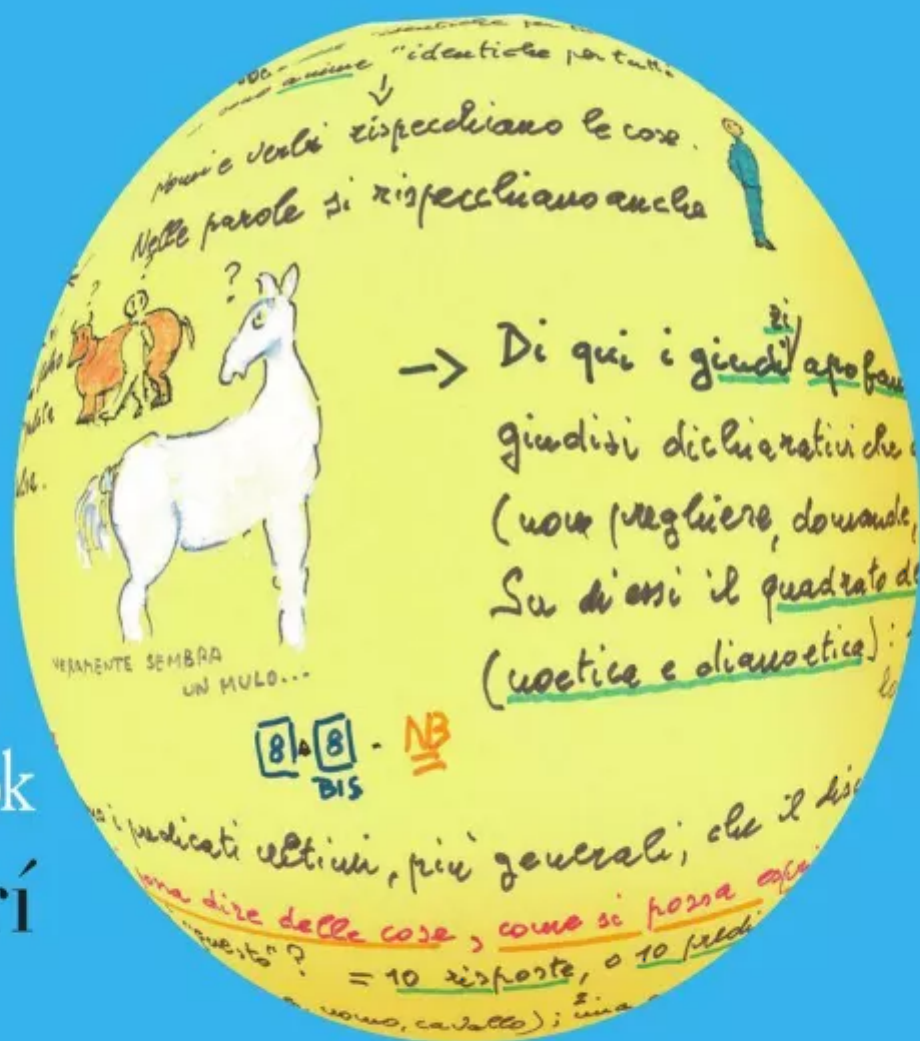 "identiche per tutti
sono anime "identiche per tutti
nomi e verbi rispecchiano le cose.
Nelle parole si rispecchiano anche
?
? ?
→ Di qui i giudizi apofan
giudizi dichiarativi che
(non preghiere, domande,
Su di essi il quadrato de
(noetica e dianoetica):
VERAMENTE SEMBRA
UN MULO...
8 8 - NB
BIS
i predicati ultimi, più generali, che il disc
possa dire delle cose, come si possa espri
"questo"? = 10 risposte, o 10 predi
uomo, cavallo); una
k
rí